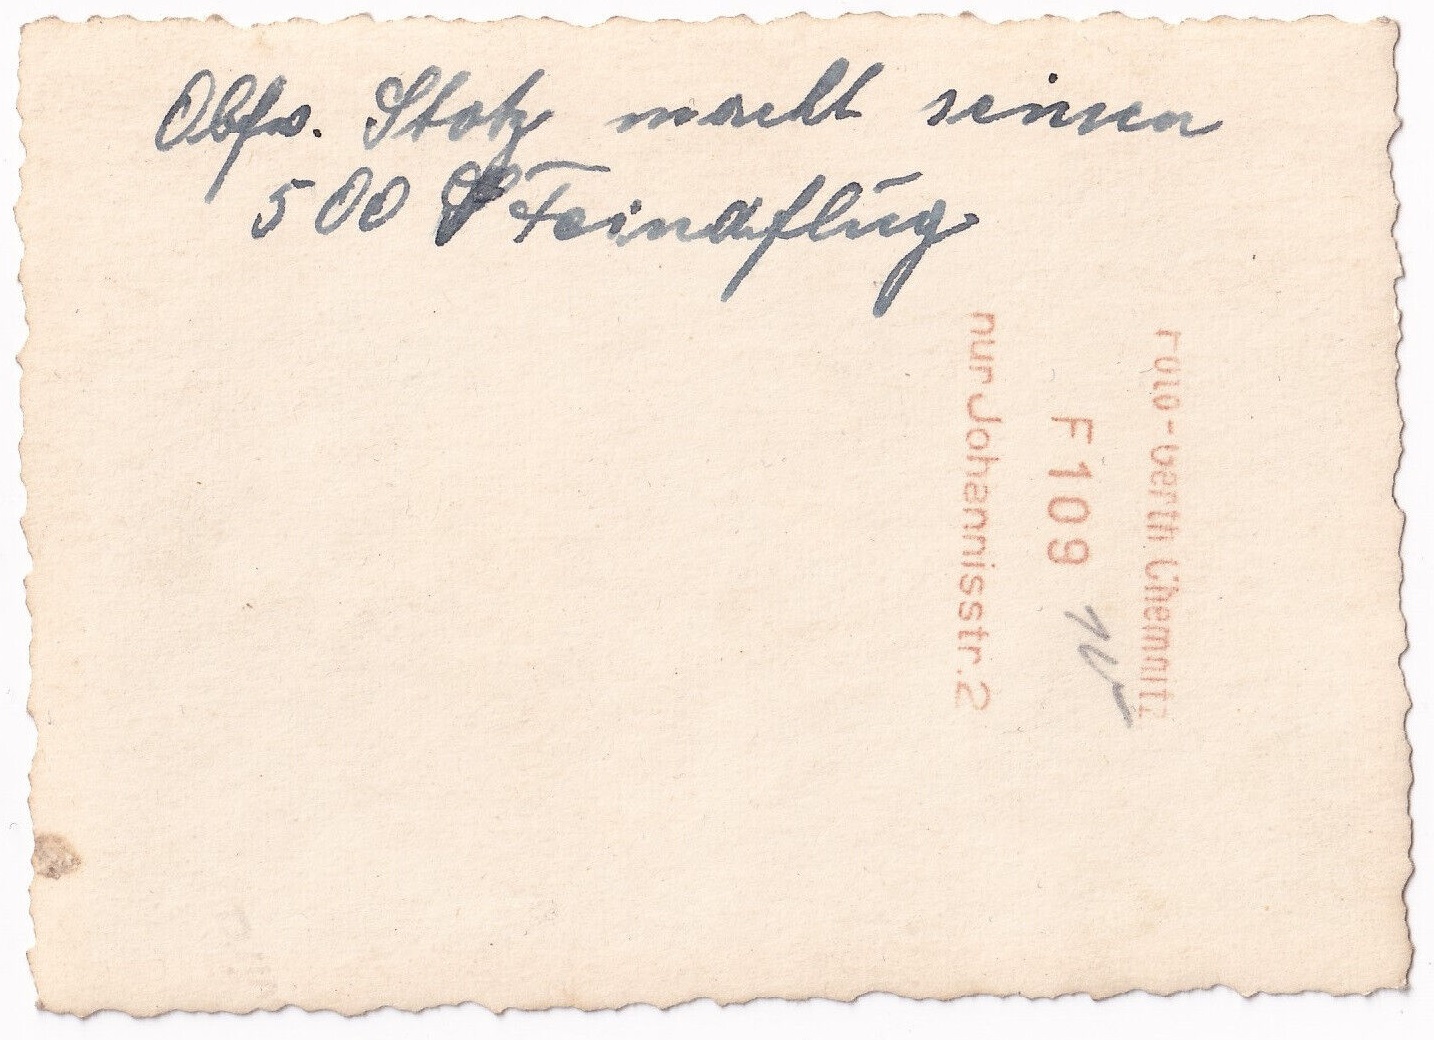 Obfw. Stotz macht seinen
500 Feindflug
Foto-Gerth Chemnitz
F109
nur Johannisstr. 2